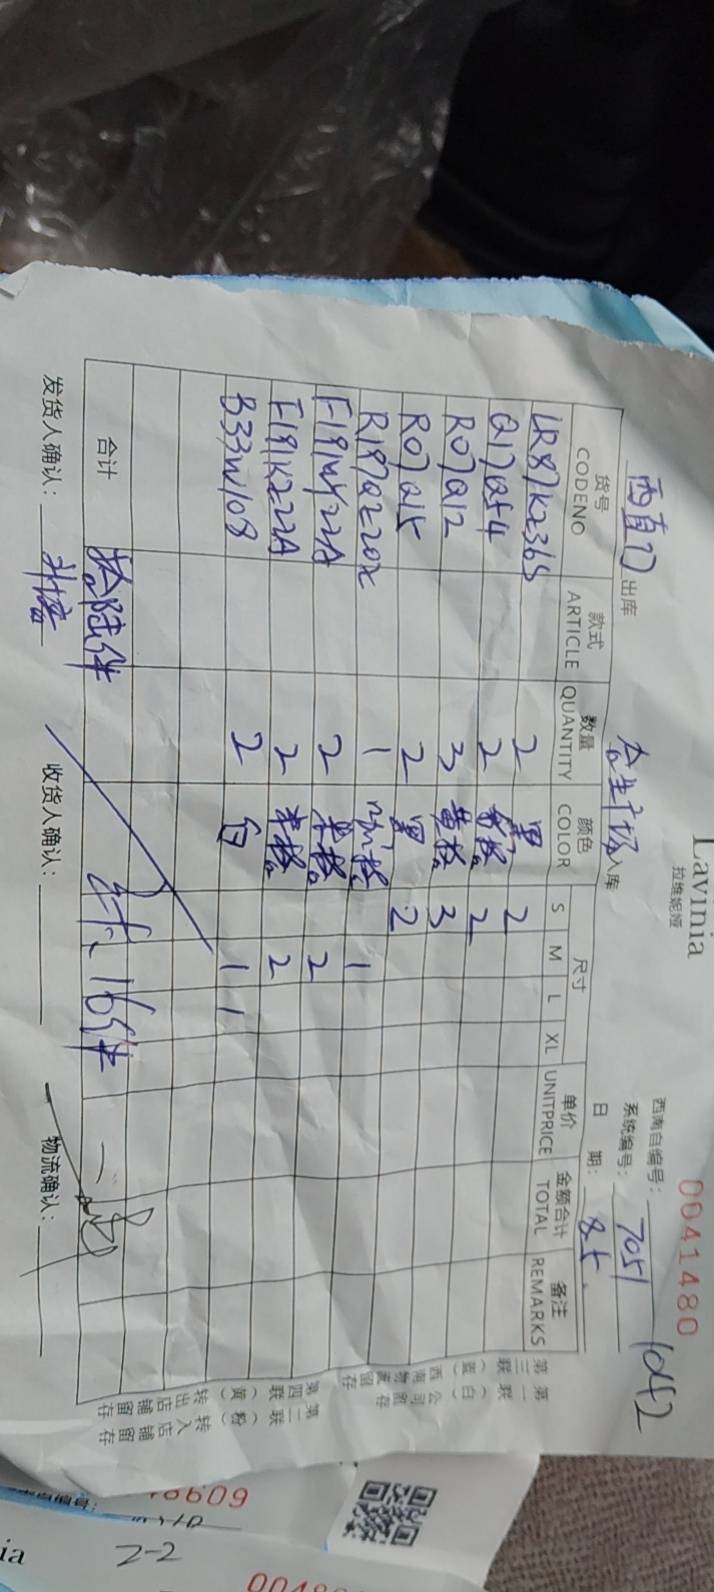 Lavinia
拉维妮娅
0041480
西南自编号： 1042
系统编号： 7051
西直门 出库 合生广场 入库 日 期： 8.5.
货号 款式 数量 颜色 尺寸 单价 金额合计 备注
CODENO ARTICLE QUANTITY COLOR S M L XL UNITPRICE TOTAL REMARKS
LR87K236S 2 黑 2
Q17Q54 2 格 2
R07Q12 3 黄格 3
R07Q15 2 黑 2
R197Q220X 1 咖格 1
F191W22A 2 米格 2
F191K222A 2 米格 2
B33W108 2 白 1 1
合计 拾陆件 16件
发货人确认： 收货人确认： 物流确认：
第一联（白）公司散卖存
第三联（蓝）西南物流留存
第二联（粉）转入店铺留存
第四联（黄）转出店铺留存
48609
2-2